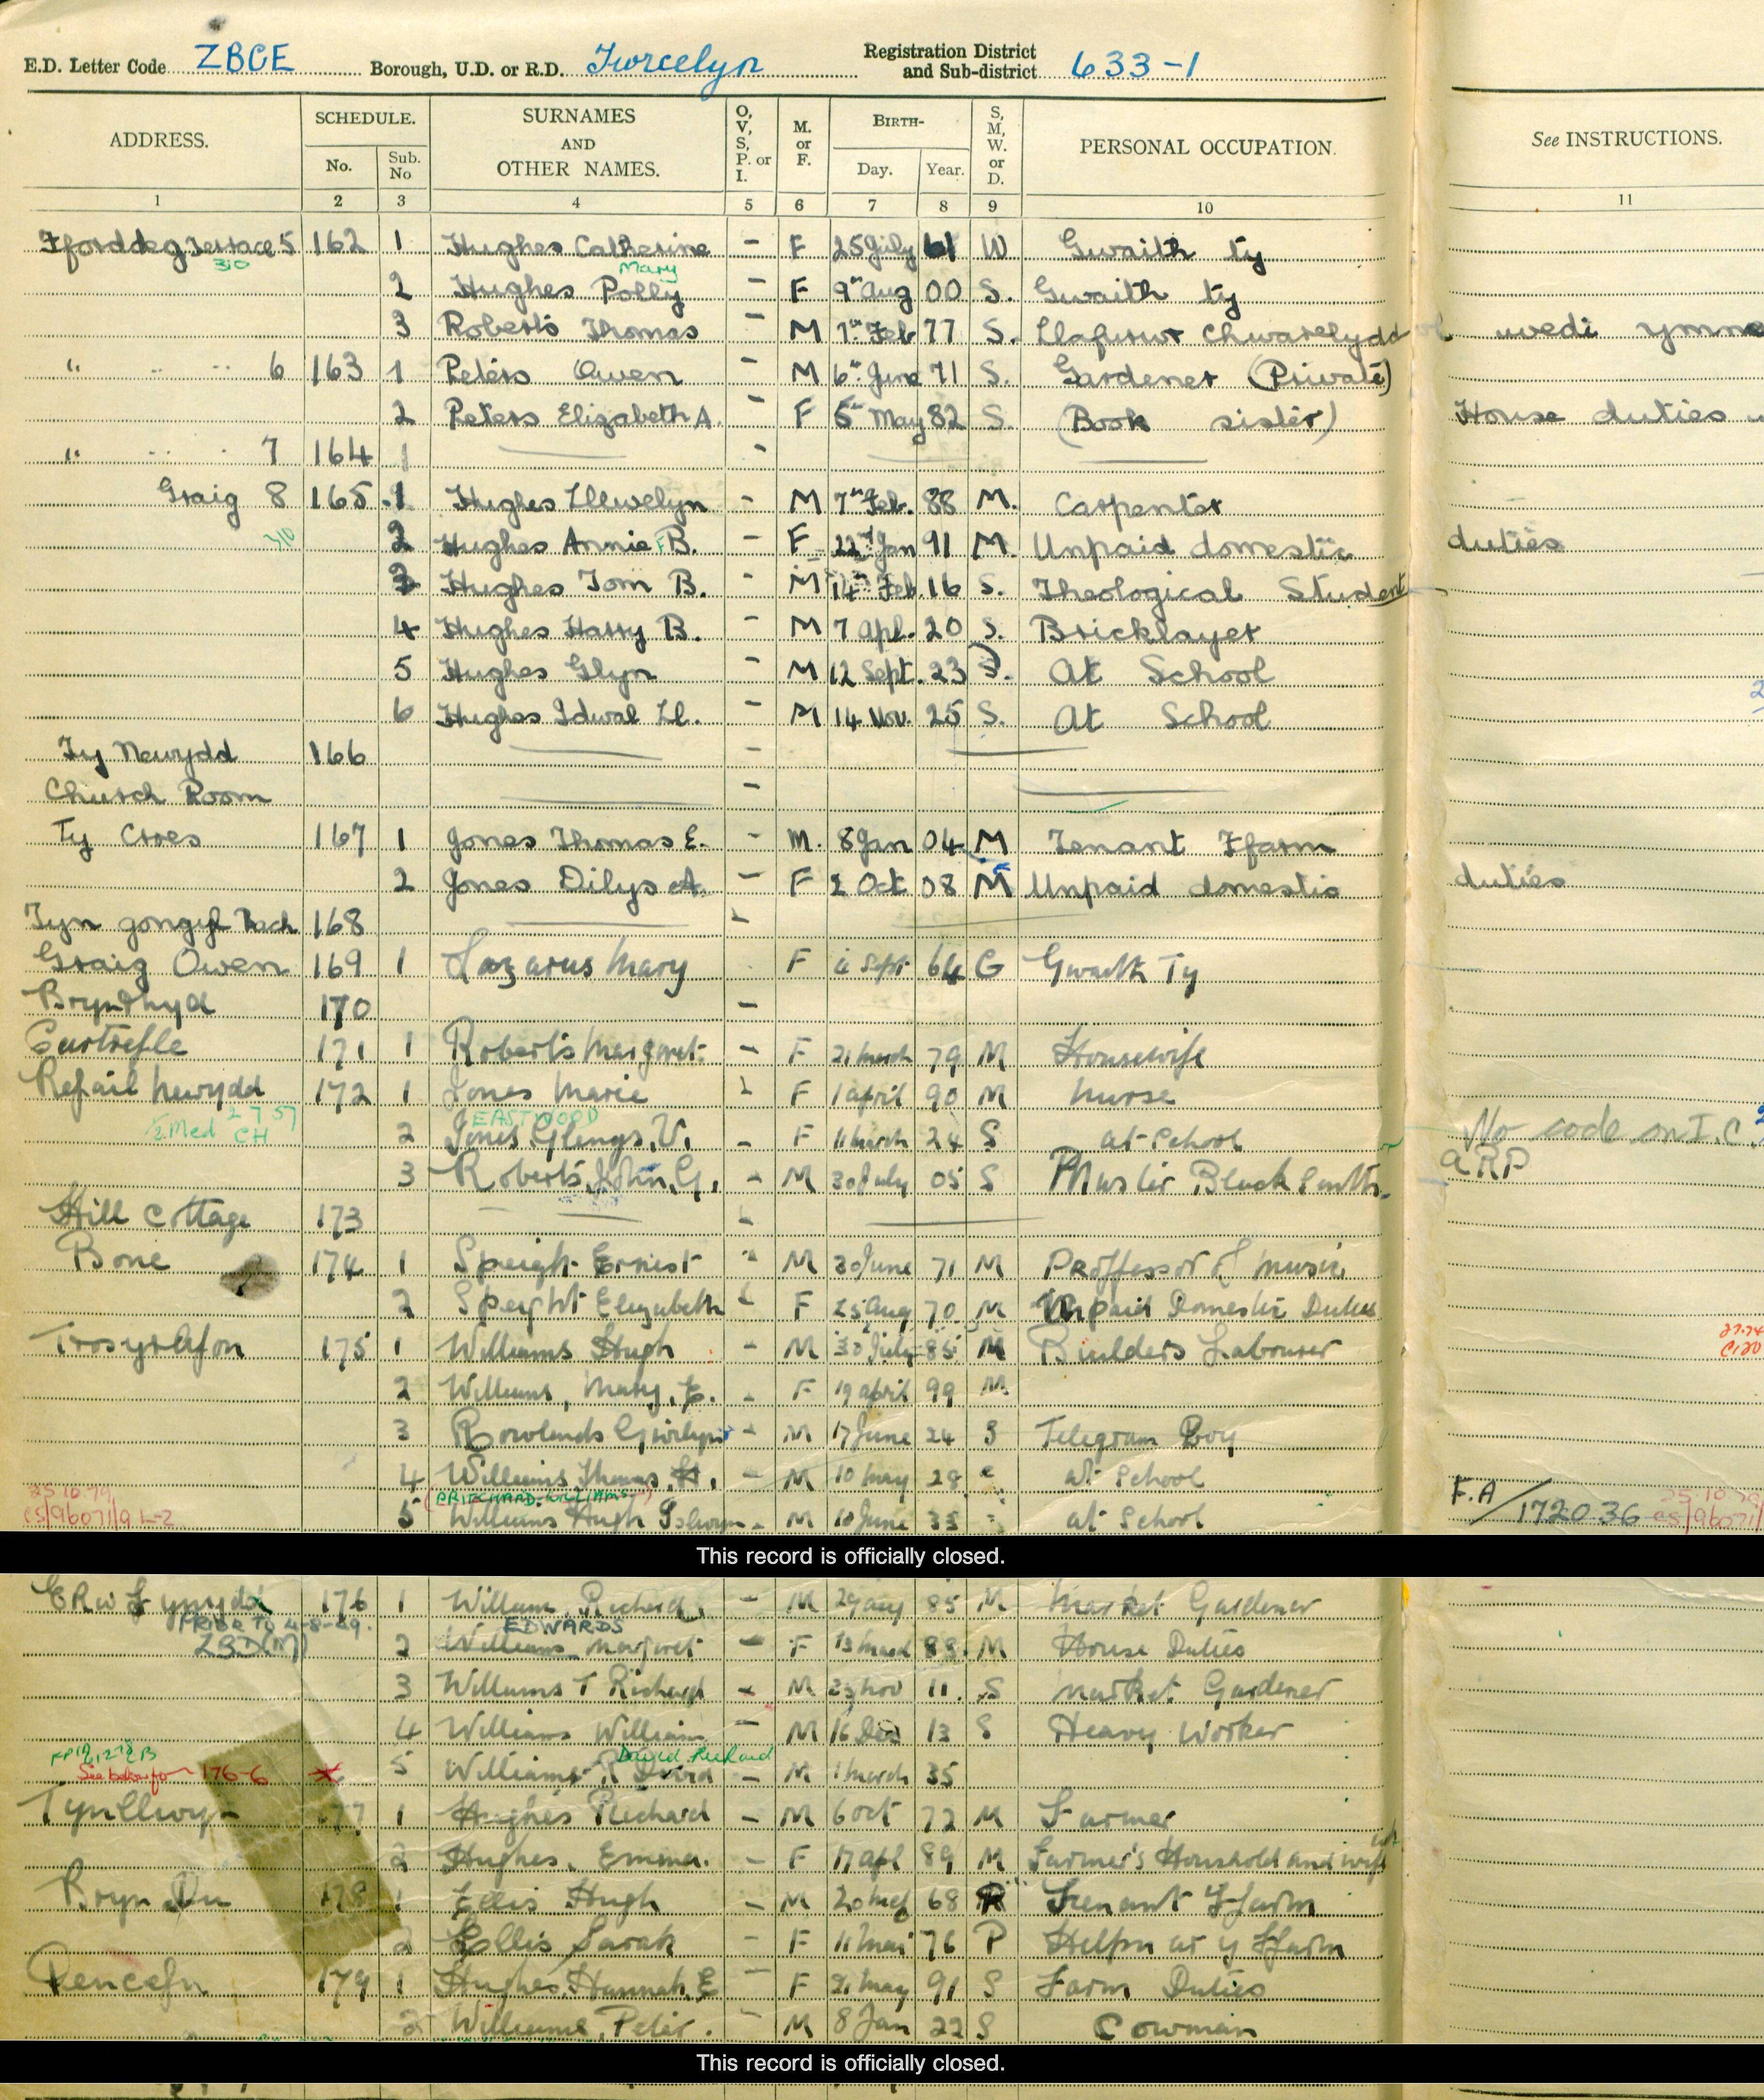 E.D. Letter Code ZBCE Borough, U.D. or R.D. Twrcelyn Registration District and Sub-district 633-1
ADDRESS. SCHEDULE. No. Sub. No SURNAMES AND OTHER NAMES. O, V, S, P. or I. M. or F. BIRTH- Day. Year. S, M, W. or D. PERSONAL OCCUPATION. See INSTRUCTIONS.
1 2 3 4 5 6 7 8 9 10 11
Ffordd deg Terrace 5 162 1 Hughes Catherine - F 25 July 61 W Gwaith ty
310 Mary
2 Hughes Polly - F 9th Aug 00 S. Gwaith ty
3 Roberts Thomas - M 7th Feb 77 S. Llafurwr Chwarelydd wedi
" " " 6 163 1 Peters Owen - M 6th June 71 S. Gardener (Private)
2 Peters Elizabeth A. - F 5th May 82 S. (Book sister) House duties
" " " 7 164 1 -
Graig 8 165 1 Hughes Llewelyn - M 7th Feb. 88 M. Carpenter
310 2 Hughes Annie F B. - F 22nd Jan 91 M. Unpaid domestic duties
3 Hughes Tom B. - M 14th Feb. 16 S. Theological Student
4 Hughes Harry B. - M 7 Apl. 20 S. Bricklayer
5 Hughes Glyn - M 12 Sept. 23 S. At School
6 Hughes Idwal Ll. - M 14 Nov. 25 S. At School
Ty Newydd 166 -
Church Room -
Ty Croes 167 1 Jones Thomas E. - M. 8 Jan 04 M Tenant Ffarm
2 Jones Dilys A. - F 2 Oct 08 M Unpaid domestic duties
Tyn gongl Bach 168 -
Graig Owen 169 1 Lazarus Mary F Sept 64 G Gwaith Ty
Bryn 170 -
Cartrefle 171 1 Roberts Margaret - F 21 March 79 M Housewife
Refail Newydd 172 1 Jones Marie - F 1 April 90 M Nurse
2 7 57 EASTWOOD
Med CH 2 Jones, V. - F 11 March 24 S at School No code on I.C.
3 Roberts, John, G. - M 30 July 05 S Master Black Smith ARP
Hill Cottage 173 -
Bone 174 1 Speight Ernest - M 30 June 71 M Proffessor of music
2 Speight Elizabeth - F 25 Aug 70 M Unpaid Domestic Duties
Trosyrafon 175 1 Williams Hugh - M 30 July 85 M Builders Labourer
2 Williams, Mary, E. - F 19 April 99 M
3 Rowlands Gwilym - M 17 June 24 S Telegram Boy
4 Williams Thomas, H. - M 10 May 28 at School
25.10.79 (PRITCHARD-WILLIAMS) F.A/172036 25.10.79
CS/96071/9 L-2 5 Williams Hugh Islwyn - M 10 June 35 at School CS/96071/
This record is officially closed.
176 1 William, Richard, - M 29 Aug 85 M Market Gardener
PRIOR TO 4-8-49. EDWARDS
ZBD(M) 2 Williams Margaret - F 13 March 88 M House Duties
3 Williams T Richard - M 23 Nov 11. S Market Gardener
4 Williams William - M 16 Dec 13 S Heavy Worker
David Richard
See below for 176-6 5 Williams R David - M 1 March 35
Tynllwyn 177 1 Hughes Richard - M 6 Oct 72 M Farmer
2 Hughes, Emma. - F 17 Apl 89 M Farmer's Household and wife
Bryn Du 178 1 Ellis Hugh - M 20 68 Tenant Ffarm
2 Ellis Sarah - F 11 Mai 76 P Helpu ar y Ffarm
Pencefn 179 1 Hughes, Hannah, E - F 21 May 91 S Farm Duties
2 Williams, Peter. - M 8 Jan 22 S Cowman
This record is officially closed.